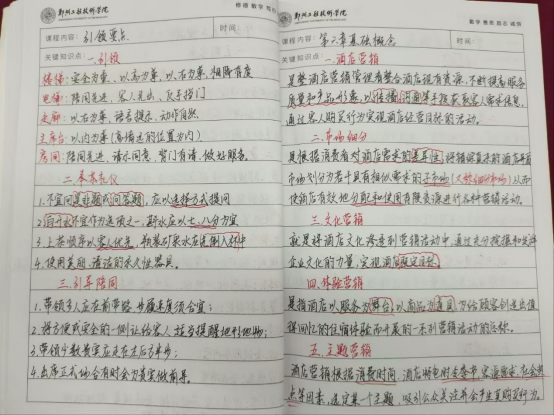 郑州工程技术学院
课程内容：引领要点
时间：
关键知识点：一.引领
楼梯：安全为重，以高为尊，以右为尊，相隔有度
电梯：陪同先进，客人先出，反手挡门
走廊：以右为尊，语言提示，动作自然
主席台：以内为尊（高墙远的位置为内）
房间：陪同先进，请示同意，背门有请，做好服务。
二.基本礼仪
1.不宜问是非题或问答题，应以选择方式提问
2.白开水不宜作为选项之一，斟水应以七、八分为宜
3.上茶顺序以客人优先，
4.使用美丽、清洁的茶具器具。
三.引导陪同
1.带领多人应在前带路，步履速度须合宜；
2.将方便或安全的一侧让给客人，适当提醒地形地物；
3.带领少数贵宾应走在左后方半步；
4.出席正式场合有时会为贵宾做前导。
郑州工程技术学院
课程内容：第六章基础概念
时间：
关键知识点：一.酒店营销
是整酒店营销实现有整合酒店现有资源，不断提高服务
质量和产品形象，以传播沟通等手段获取客人需求信息，
通过客人购买行为实现酒店经营目标的活动。
二.市场细分
是根据消费者对酒店需求的差异性，将错综复杂的酒店异质
市场划分为若干具有相似需求的子市场（大致细分市场）从而
使酒店有效地分配和使用有限资源进行各种营销活动。
三.文化营销
就是将酒店文化渗透到营销活动中，通过充分挖掘和发挥
企业文化的力量，实现酒店预定目标。
四.体验营销
是指酒店以服务为舞台，以商品为道具，为给顾客创造出值
得回忆的住宿体验而开展的一系列营销活动的总称。
五.主题营销
酒店营销根据消费时间，酒店特色时尚季节、客源需求、社会热
点等因素，选定某一个主题，吸引公众关注并会产生直购买行为。